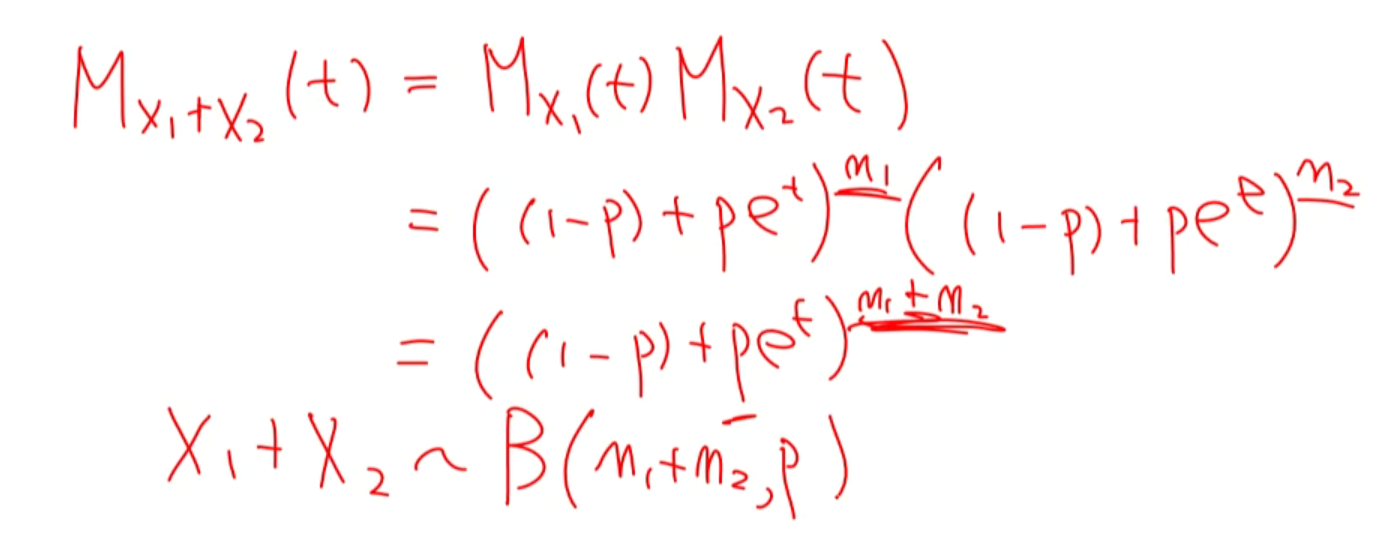 M_{X_1+X_2}(t) = M_{X_1}(t) M_{X_2}(t)
= ((1-p) + pe^t)^{n_1} ((1-p) + pe^t)^{n_2}
= ((1-p) + pe^t)^{n_1+n_2}
X_1 + X_2 ~ B(n_1+n_2, p)